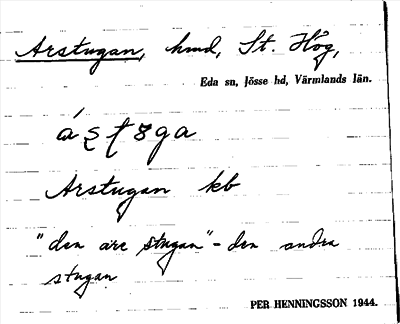 Arstugan, hmd, St. Hög,
Eda sn, Jösse hd, Värmlands län.
Arstugan kb
"den are stugan" - den andra
stugan
PER HENNINGSSON 1944.